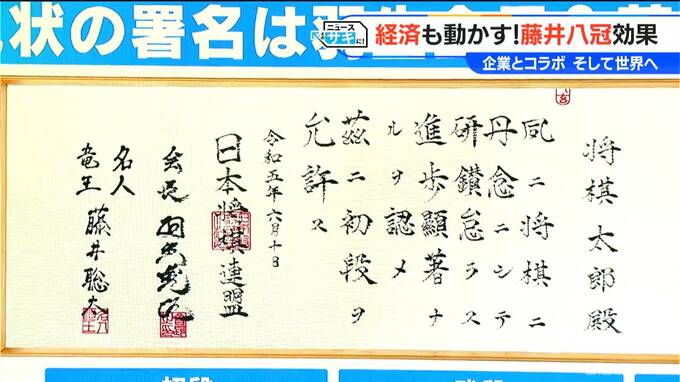 状の署名は
ニュース
サキに!
経済も動かす!藤井八冠効果
企業とコラボ そして世界へ
将棋太郎殿
夙ニ将棋ニ
丹念ニシテ
研鑽怠ラス
進歩顕著ナ
ルヲ認メ
茲ニ初段ヲ
允許ス
令和五年六月十日
日本将棋連盟
会長 羽生善治
名人
竜王 藤井聡太
初段